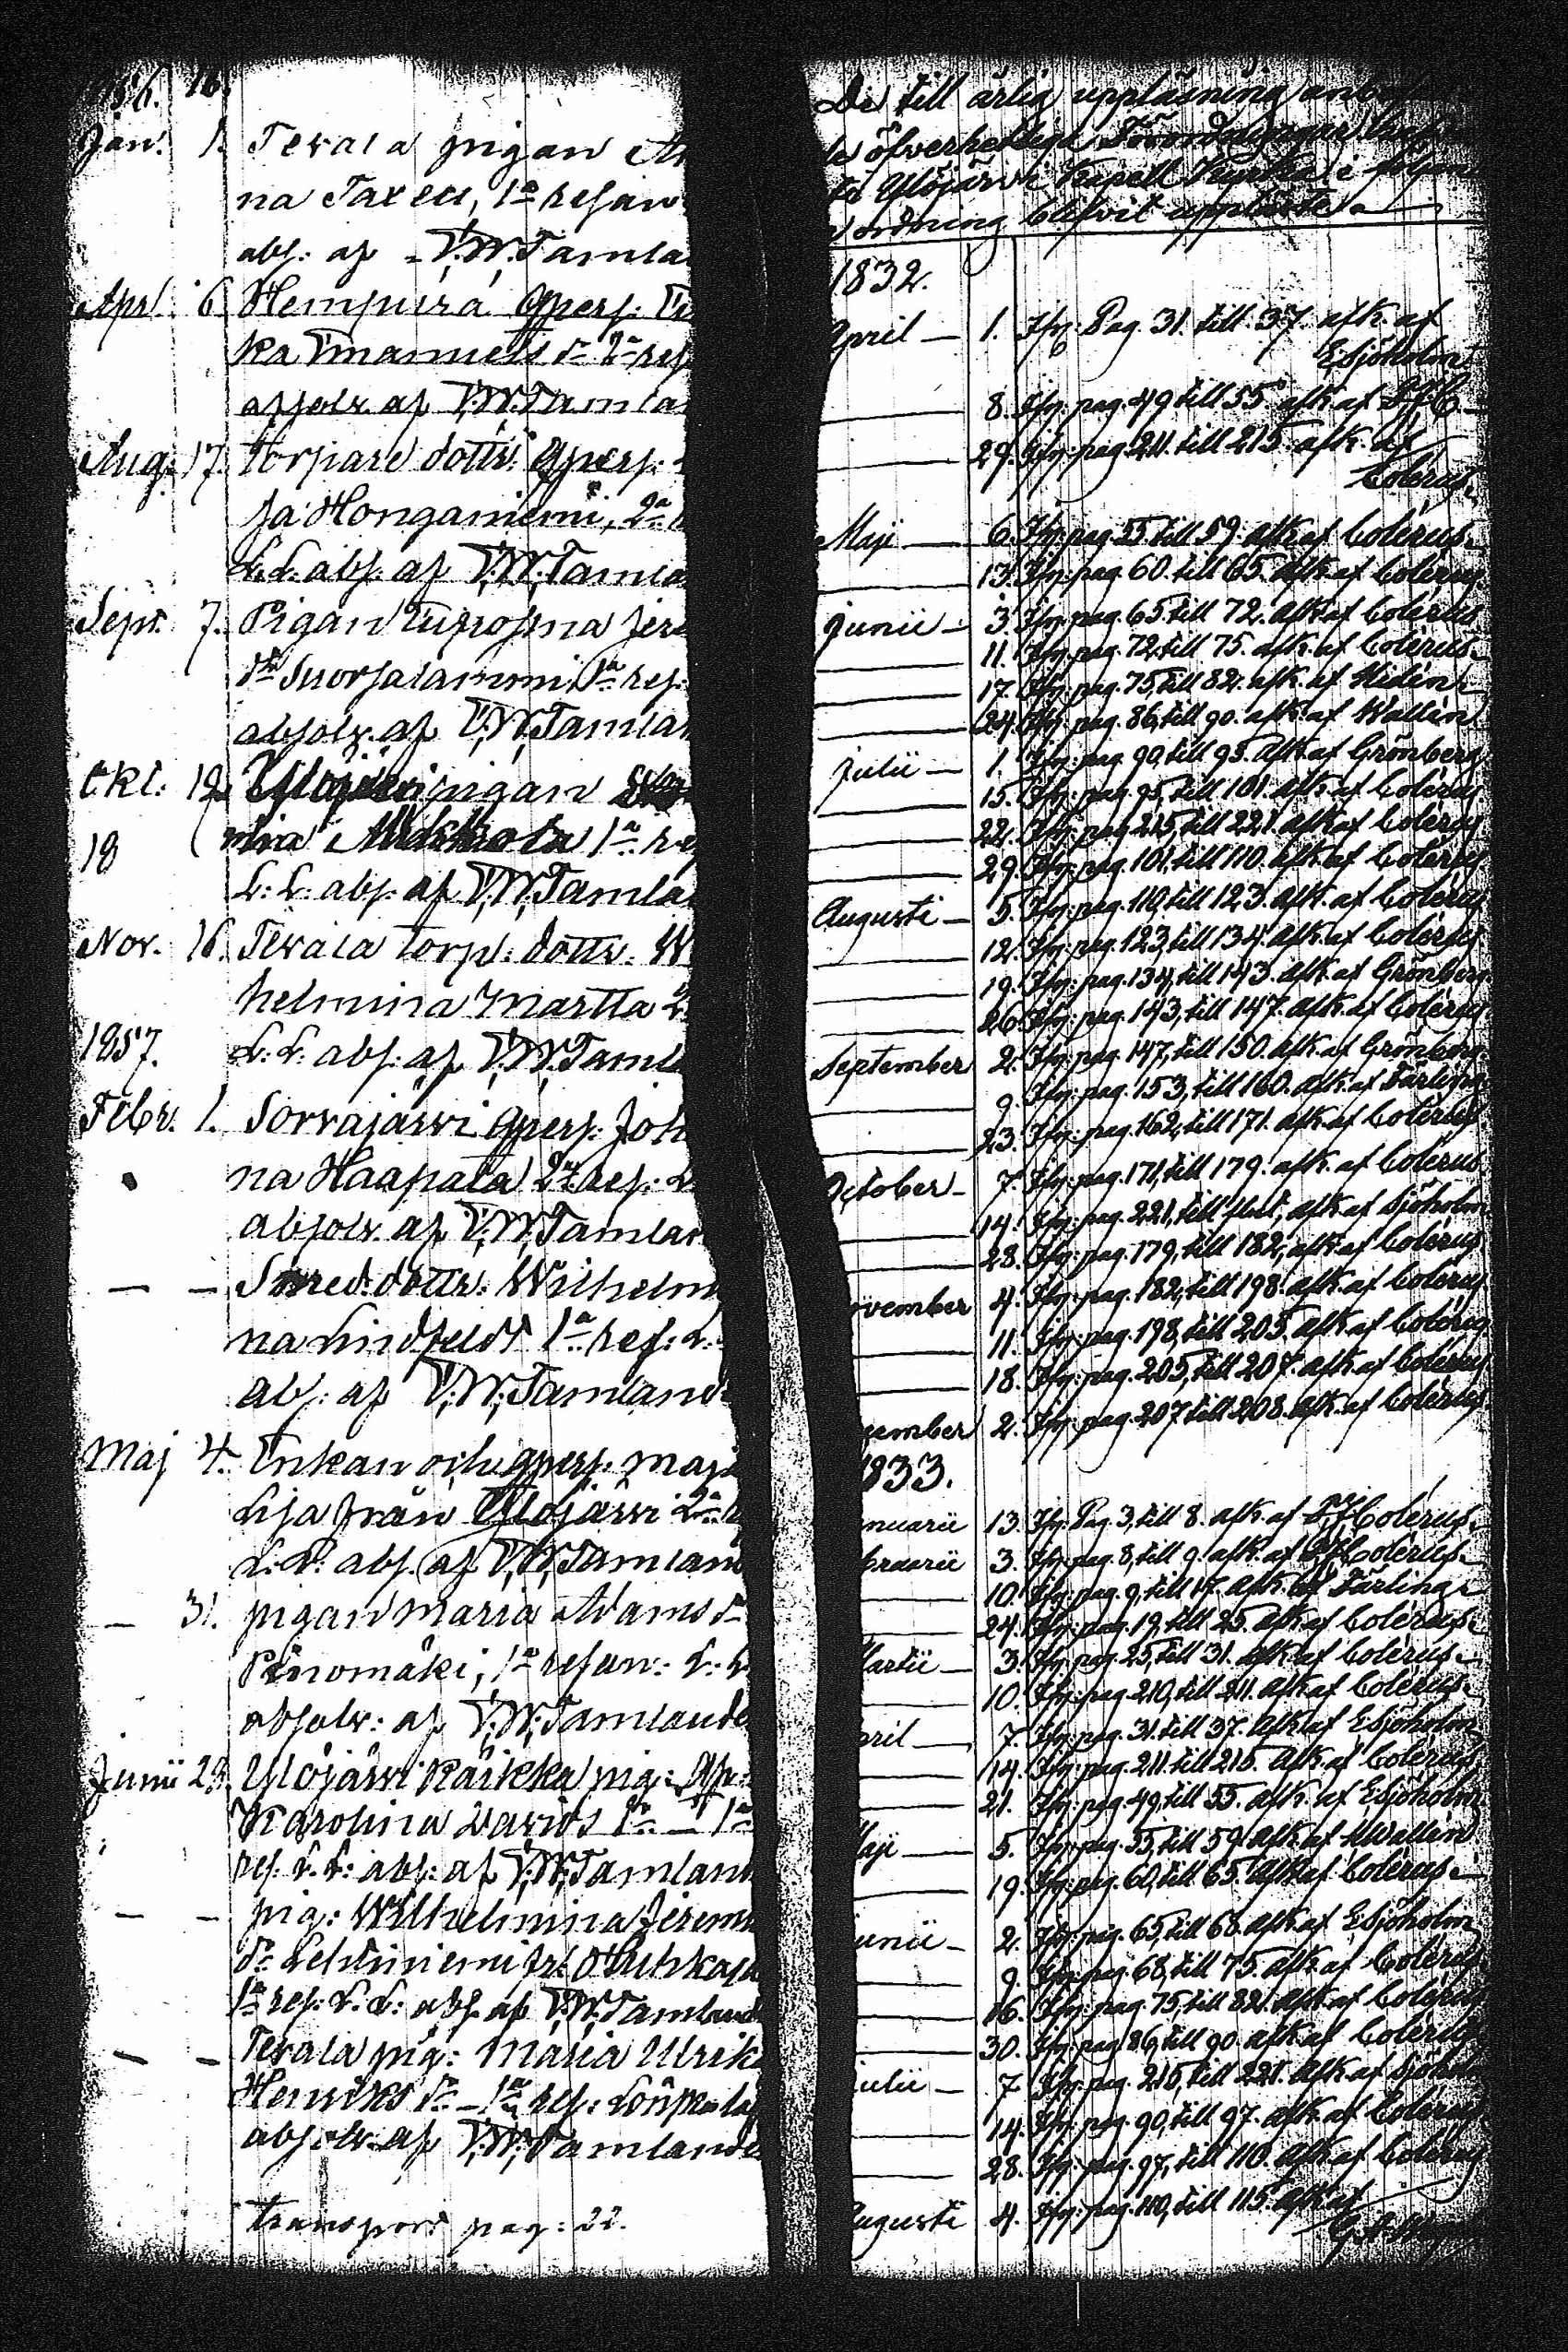 Jan. 1. Terala pigan An
na Taxell, 1:a resan
abs: af V:W:Tamla
Apr. 6. Hempura Qpers:
ka Imanuels d:r 2:a res
absolv. af V:W:Tamla
Aug: 17. torpare dottr: Qpers:
sa Honganiemi, 2:a
L:L: abs: af V:W:Tamla
Sept. 7. Pigan Eufrosina Jere
d:r Suorsalammi 1:a res:
absolv. af V:W:Tamlan
Okt: 12. Ylöjärvi pigan
mina 1:a re
18
L:L: abs: af V:W:Tamla
Nov. 16. Terala torp: dottr: W
helmina Martta 2:
1857. L:L: abs: af V:W:Taml
Febr. 1. Sorvajärvi Qpers: Joh
na Haapala 2:a res: L
absolv. af V:W:Tamlan
— — Smed: dottr: Wilhelm
na Lindfeldt 1:a res: L:
abs: af V:W:Tamland
Maj 4. Enkan och Qpers: Maja
Lisa från Ylöjärvi 2:a
L:L: abs: af V:W:Tamland
— 31. pigan Maria Adams d:r
1:a resan: L:L
absolv: af V:W:Tamlande
Junii 28. Ylöjärvi Räikkä pig:
Karolina Davids d:r — 1:a
res: L:L: abs: af V:W:Tamland
— — pig: Wilhelmina Jerem
d:r Lehtiniemi fr:
1:a res: L:L: abs: af V:W:Tamland
— — Terala pig: Maria Ulrik
Henriks d:r — 1:a res:
absolv: af V:W:Tamlande
Transport pag: 22.
De till årlig uppläsning
öfverhetliga Förordningar
Ylöjärvi Kapell Kyrka i följan
ordning blifvit uppläste.
1832.
April — 1. Förf: Pag. 31. till 37. afk. af
E Sjöholm.
— 8. Förf: pag. 49, till 55. afk. af
— 29. Förf: pag. 211. till 215. afk. af
Colerus.
Maji — 6. Förf: pag. 55 till 59. afk. af Colerus.
— 13. Förf: pag. 60. till 65. afk. af Colerus.
Junii — 3. Förf: pag. 65, till 72. afk. af Colerus
— 11. Förf: pag. 72, till 75. afk. af Colerus.
— 17. Förf: pag. 75, till 82. afk. af Hidén.
— 24. Förf: pag. 86, till 90. afk. af Wallin
Julii — 1. Förf: pag. 90, till 95. afk. af Grönberg
— 15. Förf: pag. 95, till 101. afk. af Colerus
— 22. Förf: pag. 215, till 221. afk. af Colerus
— 29. Förf: pag. 101, till 110. afk. af Colerus
Augusti — 5. Förf: pag. 110, till 123. afk. af Colerus
— 12. Förf: pag. 123, till 134. afk. af Colerus
— 19. Förf: pag. 134, till 143. afk. af Grönberg
— 26. Förf: pag. 143, till 147. afk. af Colerus
September 2. Förf: pag. 147, till 150. afk. af Grönberg.
— 9. Förf: pag. 153, till 160. afk. af Färling
— 23. Förf: pag. 162, till 171. afk. af Colerus
October — 7. Förf: pag. 171, till 179. afk. af Colerus.
— 14. Förf: pag. 221, till slut, afk. af Sjöholm
— 28. Förf: pag. 179, till 182, afk. af Colerus
ovember 4. Förf: pag. 182, till 198. afk. af Colerus
— 11. Förf: pag. 198, till 205. afk. af Colerus
— 18. Förf: pag. 205, till 207. afk. af Colerus
cember 2. Förf: pag. 207 till 208. afk. af Colerus
1833.
nuarii 13. Förf: Pag. 3, till 8. afk. af Colerus.
bruarii 3. Förf: pag. 8, till 9. afk. af Colerus.
— 10. Förf: pag. 9, till 17. afk. af Färling.
— 24. Förf: pag. 19, till 25. afk. af Colerus.
Martii — 3. Förf: pag. 25, till 31. afk. af Colerus.
— 10. Förf: pag. 210, till 211. afk. af Colerus.
pril — 7. Förf: pag. 31. till 37. afk. af E Sjöholm
— 14. Förf: pag. 211. till 215. afk. af Colerus
— 21. Förf: pag. 49, till 55. afk. af E Sjöholm
Maji — 5. Förf: pag. 55, till 59. afk. af Wallin
— 19. Förf: pag. 60, till 65. afk. af Colerus.
unii — 2. Förf: pag. 65, till 68. afk. af E Sjöholm
— 9. Förf: pag. 68, till 75. afk. af Colerus
— 16. Förf: pag. 75, till 82. afk. af Colerus
— 30. Förf: pag. 86, till 90. afk. af Colerus
ulii — 7. Förf: pag. 215, till 221. afk. af Sjöholm
— 14. Förf: pag. 90, till 97. afk. af Colerus
— 28. Förf: pag. 97, till 110. afk. af Colerus
ugusti 4. Förf: pag. 110, till 115. afk. af